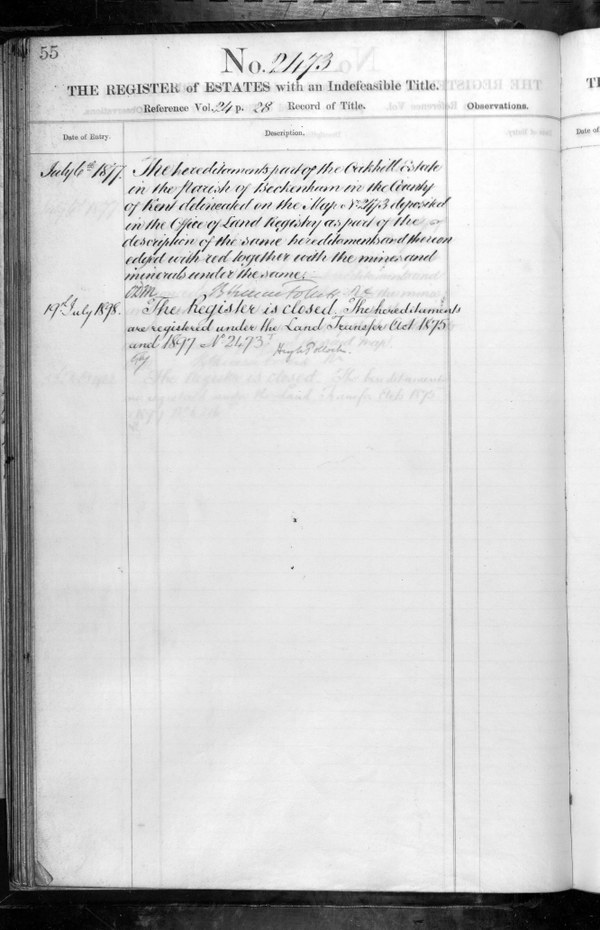 55
No. 2473
THE REGISTER of ESTATES with an Indefeasible Title.
Reference Vol. 24 p. 28 Record of Title.
Observations.
Date of Entry.
Description.
July 6th 1877. The hereditaments part of the Oakhill Estate
in the Parish of Beckenham in the County
of Kent delineated on the Map No 2473 deposited
in the Office of Land Registry as part of the
description of the same hereditaments and thereon
edged with red together with the mines and
minerals under the same.
19th July 1898. The Register is closed. The hereditaments
are registered under the Land Transfer Act 1875
and 1897 No 2473
Hugh Pollock.